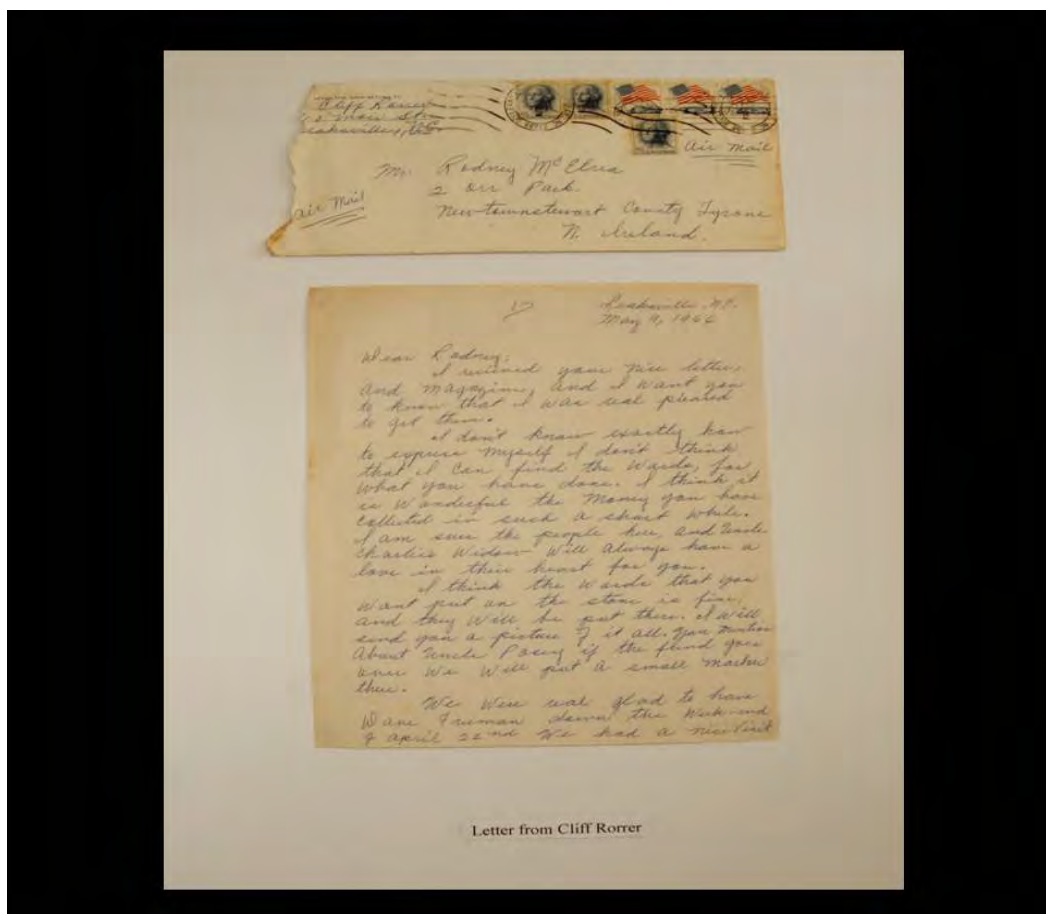 Cliff Rorrer
Main St.
Leaksville, N.C.
Air Mail
Mr. Rodney McElrea
2 Orr Park
Newtownstewart County Tyrone
N. Ireland.
Air Mail
1)
Leaksville, N.C.
May 9, 1966
Dear Rodney:
I received your nice letter,
and magazine, and I want you
to know that I was real pleased
to get them.
I don't know exactly how
to express myself I don't think
that I can find the words, for
what you have done. I think it
is wonderful the money you have
collected in such a short while.
I am sure the people here, and Uncle
Charlies Widow will always have a
love in their heart for you.
I think the words that you
want put on the stone is fine,
and they will be put there. I will
send you a picture of it all. You mention
about Uncle Posey if the fund goes
over we will put a small marker
there.
We were real glad to have
Dave Freeman down the week-end
of April 22nd We had a nice visit
Letter from Cliff Rorrer